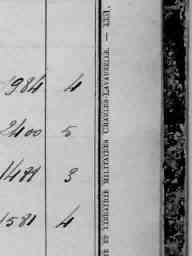 984 4
2400 5
1481 3
1581 4
E ET LIBRAIRIE MILITAIRES CHARLES-LAVAUZELLE. —